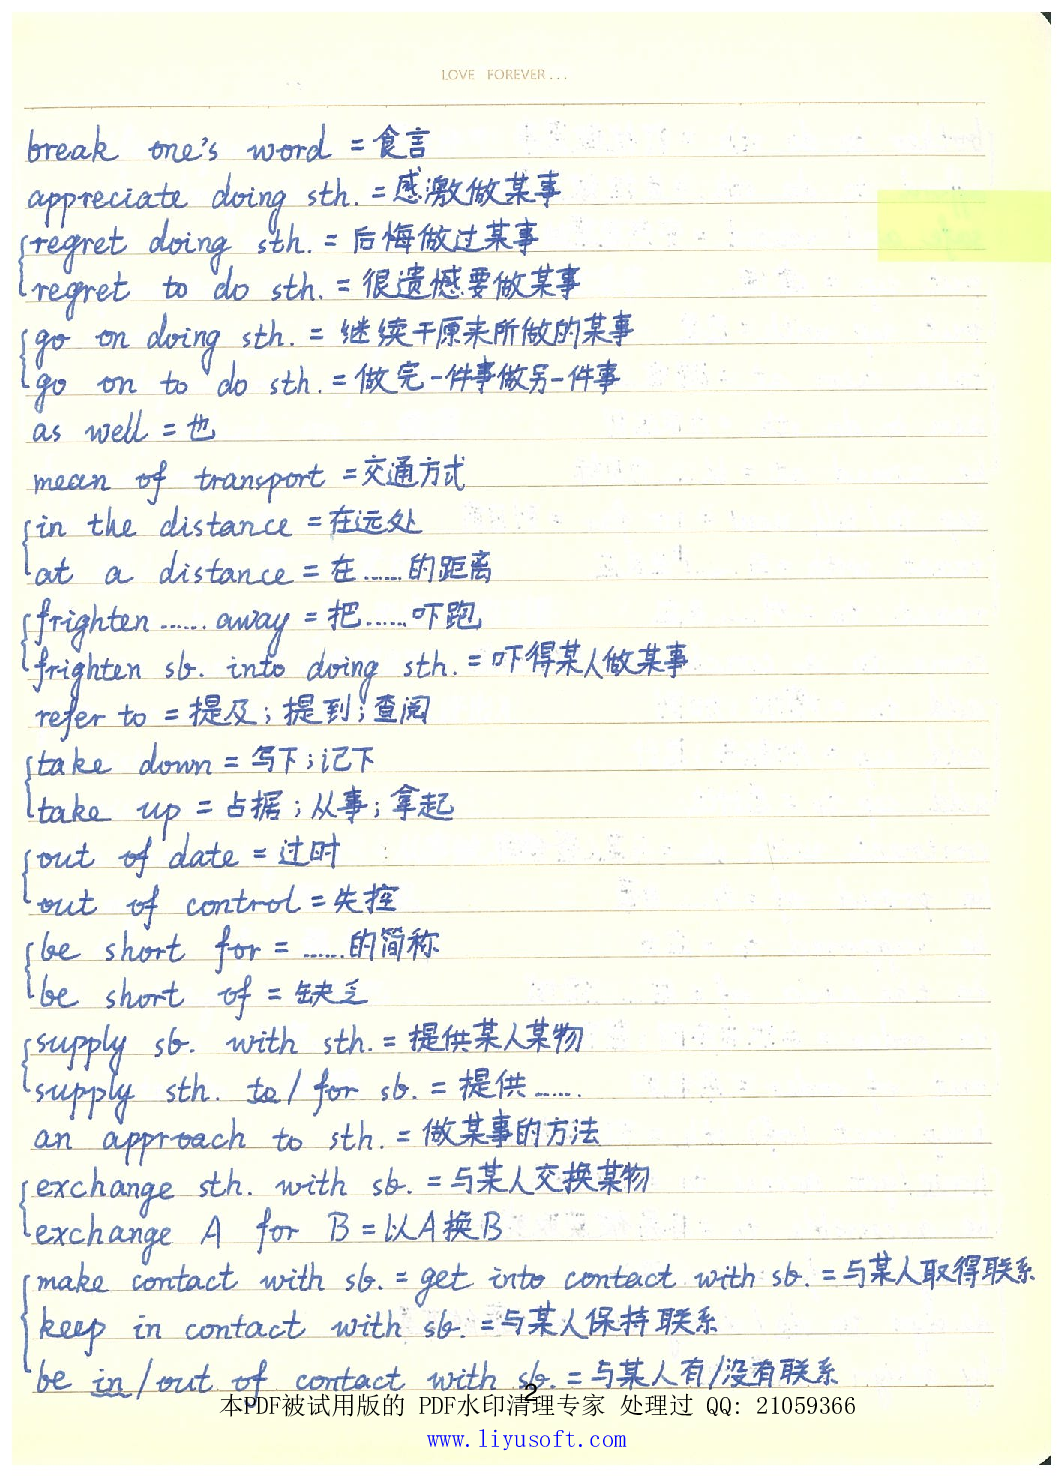 LOVE FOREVER...
break one's word = 食言
appreciate doing sth. = 感激做某事
regret doing sth. = 后悔做过某事
regret to do sth. = 很遗憾要做某事
go on doing sth. = 继续干原来所做的某事
go on to do sth. = 做完一件事做另一件事
as well = 也
mean of transport = 交通方式
in the distance = 在远处
at a distance = 在……的距离
frighten …… away = 把……吓跑
frighten sb. into doing sth. = 吓得某人做某事
refer to = 提及；提到；查阅
take down = 写下；记下
take up = 占据；从事；拿起
out of date = 过时
out of control = 失控
be short for = ……的简称
be short of = 缺乏
supply sb. with sth. = 提供某人某物
supply sth. to / for sb. = 提供……
an approach to sth. = 做某事的方法
exchange sth. with sb. = 与某人交换某物
exchange A for B = 以A换B
make contact with sb. = get into contact with sb. = 与某人取得联系
keep in contact with sb. = 与某人保持联系
be in / out of contact with sb. = 与某人有/没有联系
2
本PDF被试用版的 PDF水印清理专家 处理过 QQ: 21059366
www.liyusoft.com